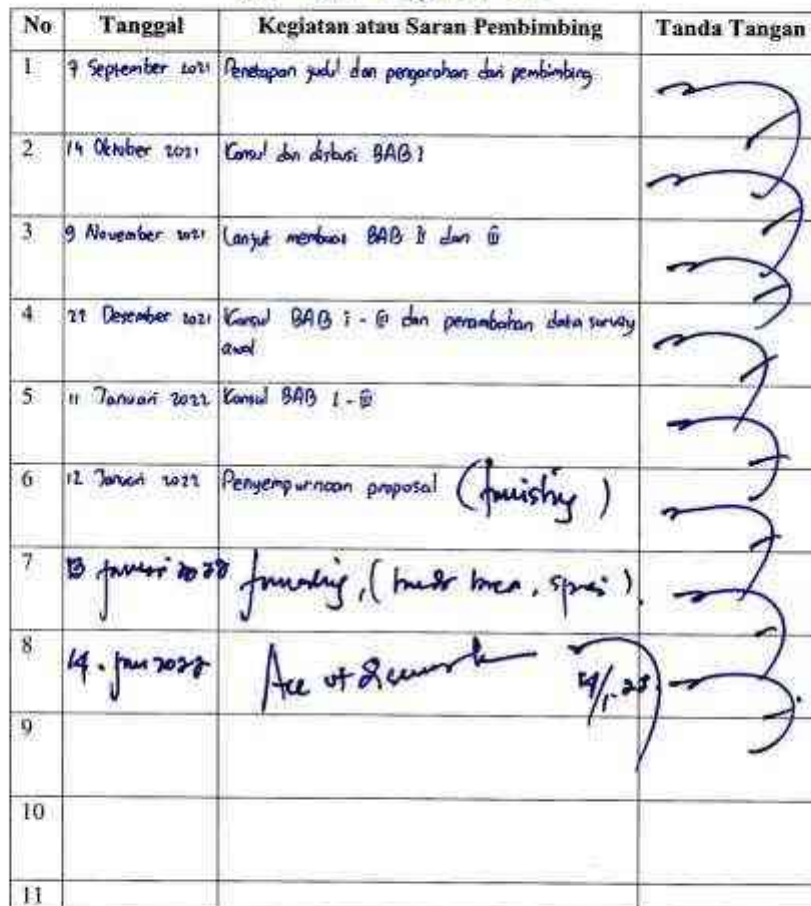 No Tanggal Kegiatan atau Saran Pembimbing Tanda Tangan
1 7 September 2021 Penetapan judul dan pengarahan dari pembimbing
2 14 Oktober 2021 Konsul dan diskusi BAB I
3 9 November 2021 Lanjut membuat BAB II dan III
4 22 Desember 2021 Konsul BAB I - III dan penambahan data survey
awal
5 11 Januari 2022 Konsul BAB I - III
6 12 Januari 2022 Penyempurnaan proposal (finishing)
7 13 Januari 2022
8 14. Jan 2022 Acc
9
10
11